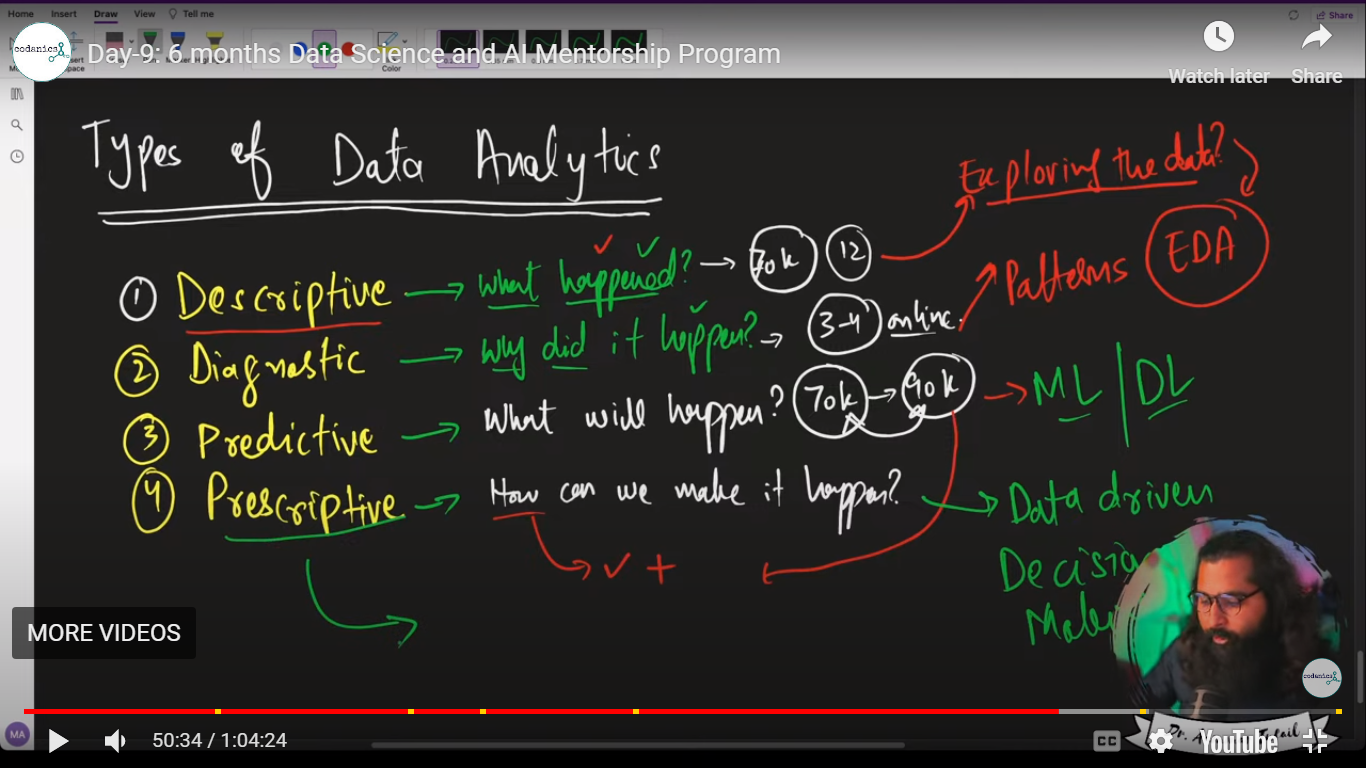 Home Insert Draw View Tell me Share
codanics
Day-9: 6 months Data Science and AI Mentorship Program
Watch later Share
Color
Types of Data Analytics
Exploring the data?
EDA
① Descriptive → what happened? → 12
Patterns
② Diagnostic → why did it happen? → 3-4 online
③ Predictive → What will happen? 70k → 90k → ML | DL
④ Prescriptive → How can we make it happen? → Data driven
Decision
✓ +
MORE VIDEOS
codanics
MA
50:34 / 1:04:24
CC
YouTube
Dr.